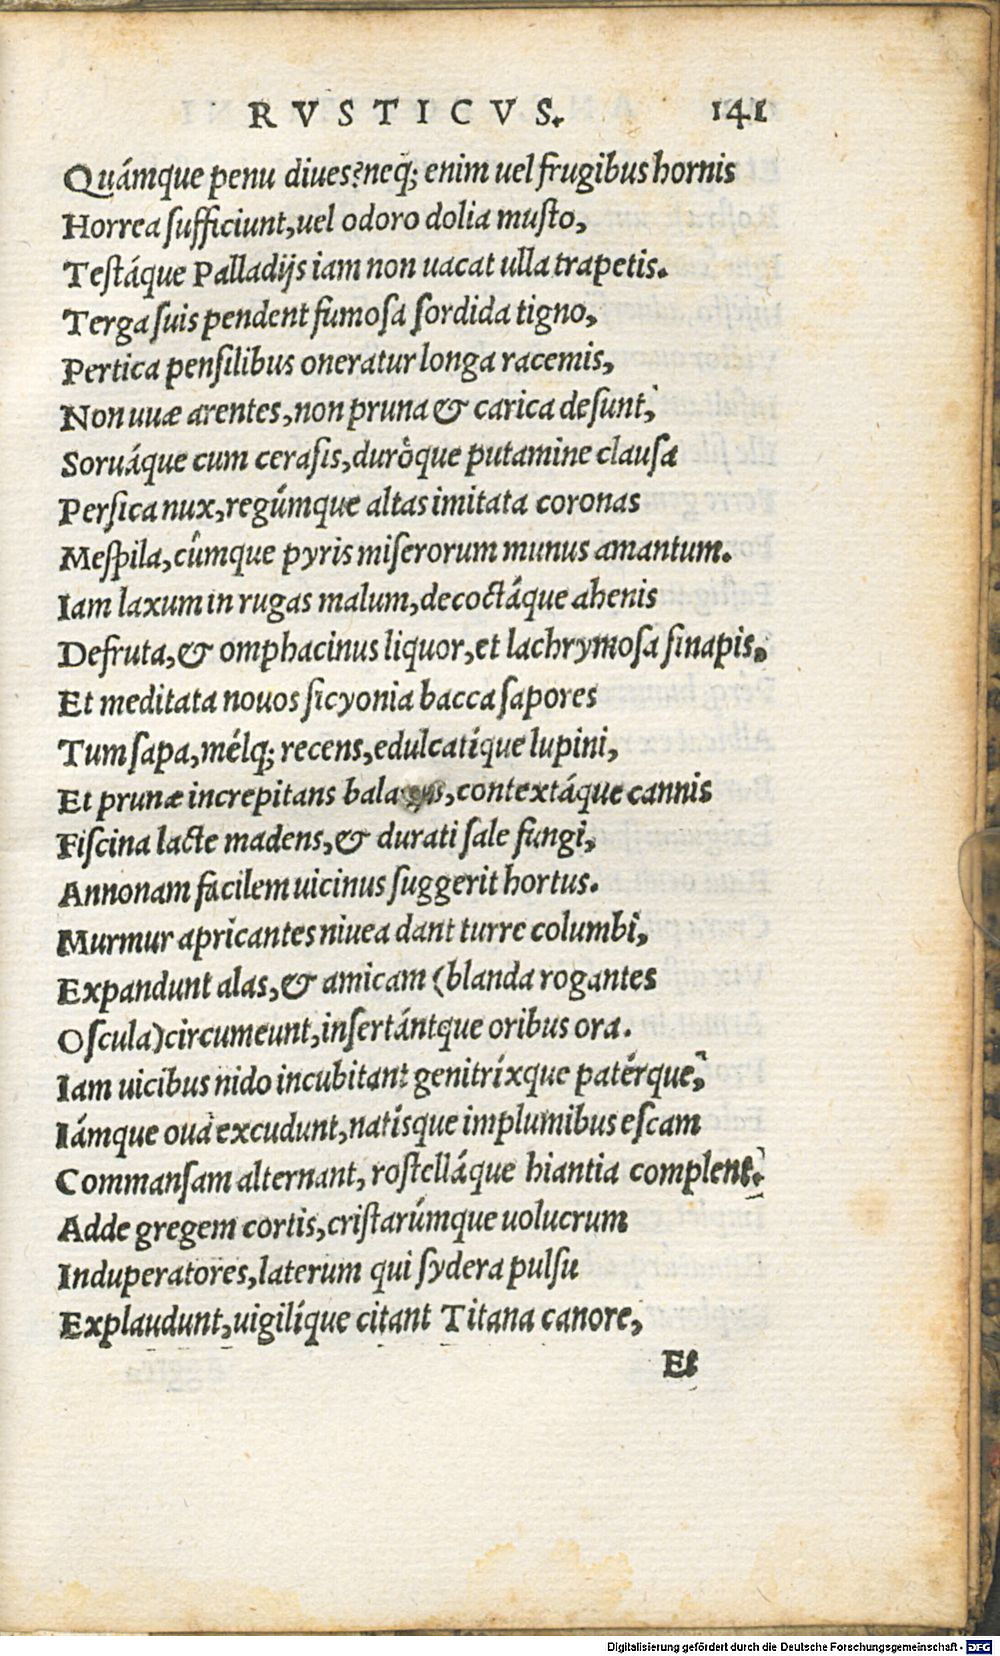 RVSTICVS. 141
Quámque penu diues? neq; enim uel frugibus hornis
Horrea sufficiunt, uel odoro dolia musto,
Testáque Palladijs iam non uacat ulla trapetis.
Terga suis pendent fumosa sordida tigno,
Pertica pensilibus oneratur longa racemis,
Non uuæ arentes, non pruna & carica desunt,
Soruáque cum cerasis, duróque putamine clausa
Persica nux, regúmque altas imitata coronas
Mespila, cúmque pyris miserorum munus amantum.
Iam laxum in rugas malum, decoctáque ahenis
Defruta, & omphacinus liquor, et lachrymosa sinapis,
Et meditata nouos sicyonia bacca sapores
Tum sapa, mélq; recens, edulcatíque lupini,
Et prunæ increpitans , contextáque cannis
Fiscina lacte madens, & durati sale fungi,
Annonam facilem uicinus suggerit hortus.
Murmur apricantes niuea dant turre columbi,
Expandunt alas, & amicam (blanda rogantes
Oscula) circumeunt, insertántque oribus ora.
Iam uicibus nido incubitant genitríxque patérque,
Iámque oua excudunt, natísque implumibus escam
Commansam alternant, rostelláque hiantia complent.
Adde gregem cortis, cristarúmque uolucrum
Induperatores, laterum qui sydera pulsu
Explaudunt, uigilíque citant Titana canore,
Et
Digitalisierung gefördert durch die Deutsche Forschungsgemeinschaft - DFG